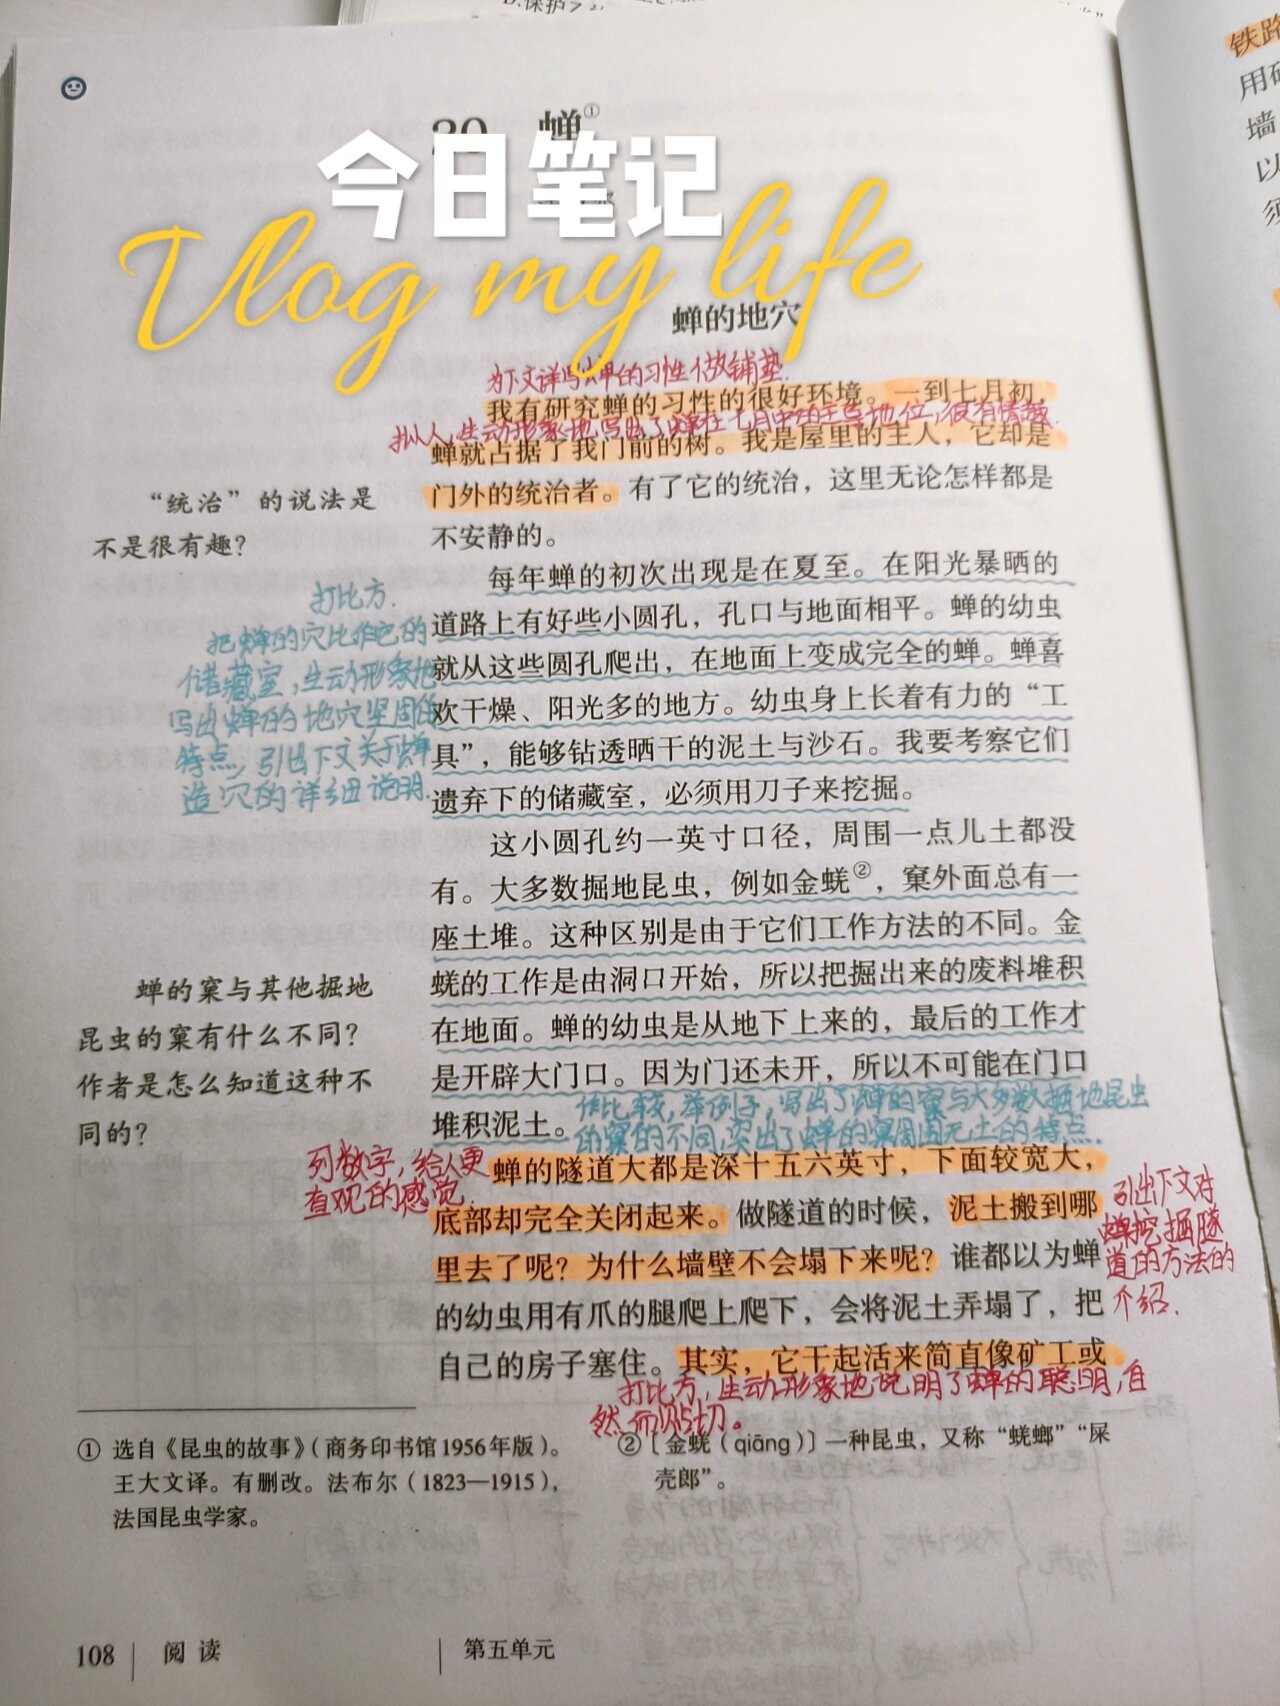 20 蝉①
今日笔记
Vlog my life
蝉的地穴
为下文详写蝉的习性做铺垫.
我有研究蝉的习性的很好环境。一到七月初，
拟人,生动形象地写出了蝉在七月中的主导地位,很有情趣.
蝉就占据了我门前的树。我是屋里的主人，它却是
门外的统治者。有了它的统治，这里无论怎样都是
不安静的。
“统治”的说法是
不是很有趣？
每年蝉的初次出现是在夏至。在阳光暴晒的
道路上有好些小圆孔，孔口与地面相平。蝉的幼虫
就从这些圆孔爬出，在地面上变成完全的蝉。蝉喜
欢干燥、阳光多的地方。幼虫身上长着有力的“工
具”，能够钻透晒干的泥土与沙石。我要考察它们
遗弃下的储藏室，必须用刀子来挖掘。
打比方.
把蝉的穴比作它的
储藏室,生动形象地
写出蝉的地穴坚固的
特点,引出下文关于蝉
造穴的详细说明.
这小圆孔约一英寸口径，周围一点儿土都没
有。大多数掘地昆虫，例如金蜣②，窠外面总有一
座土堆。这种区别是由于它们工作方法的不同。金
蜣的工作是由洞口开始，所以把掘出来的废料堆积
在地面。蝉的幼虫是从地下上来的，最后的工作才
是开辟大门口。因为门还未开，所以不可能在门口
堆积泥土。
蝉的窠与其他掘地
昆虫的窠有什么不同？
作者是怎么知道这种不
同的？
作比较,举例子,写出了蝉的窠与大多数掘地昆虫
的窠的不同,突出了蝉的窠周围无土的特点.
列数字,给人更
直观的感觉.
蝉的隧道大都是深十五六英寸，下面较宽大，
底部却完全关闭起来。做隧道的时候，泥土搬到哪
里去了呢？为什么墙壁不会塌下来呢？谁都以为蝉
的幼虫用有爪的腿爬上爬下，会将泥土弄塌了，把
自己的房子塞住。其实，它干起活来简直像矿工或
引出下文对
蝉挖掘隧
道的方法的
介绍.
打比方,生动形象地说明了蝉的聪明,自
然而贴切。
① 选自《昆虫的故事》（商务印书馆1956年版）。
王大文译。有删改。法布尔（1823—1915），
法国昆虫学家。
② ［金蜣（qiāng）］一种昆虫，又称“蜣螂”“屎
壳郎”。
108 阅读 第五单元
铁路
用
墙
以